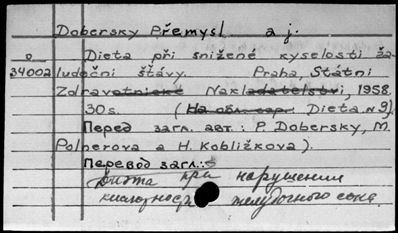 Dobersky Přemysl a j.
o Dieta při snížené kyselosti ža-
34002 ludeční šťávy. Praha, Státni
Zdravotnické Nakladatelstvi, 1958.
30s. (На обл. сер. Dieta N 9).
Перед загл. авт.: P. Dobersky, M.
Polnerova a H. Kobližkova).
Перевод загл.:
Диета при нарушении
кислотнос желудочного сока.